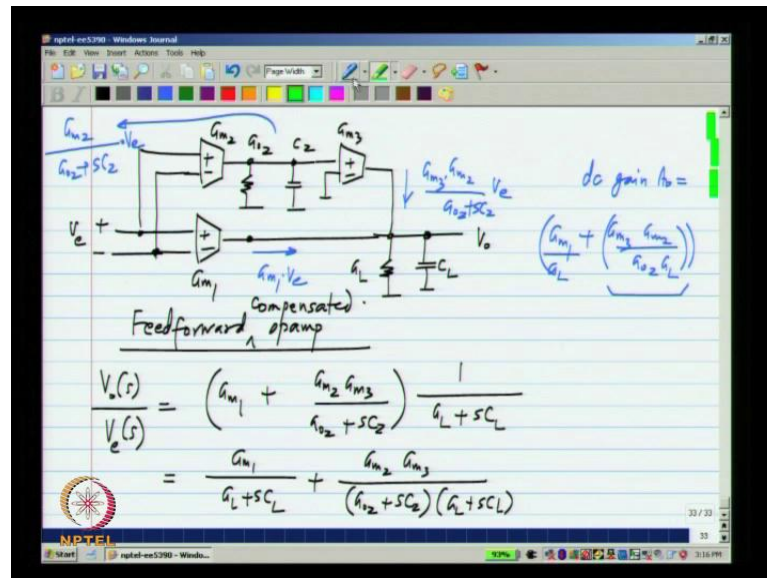 nptel-ee5390 - Windows Journal
File Edit View Insert Actions Tools Help
Page Width
B I
Gm2 / (Go2 + sC2) · Ve
Gm2 Go2 C2 Gm3
+ - + -
Gm3 · Gm2 / (Go2 + sC2) Ve
dc gain A0 =
(Gm1 / GL + (Gm3 Gm2 / Go2 GL))
Ve + -
+ -
Gm1
Gm1 · Ve
Vo
GL CL
Feedforward ^ compensated opamp
Vo(s) / Ve(s) = (Gm1 + Gm2 Gm3 / (Go2 + sC2)) 1 / (GL + sCL)
= Gm1 / (GL + sCL) + Gm2 Gm3 / ((Go2 + sC2)(GL + sCL))
33 / 33
33
NPTEL
Start nptel-ee5390 - Windo... 93% 3:16 PM